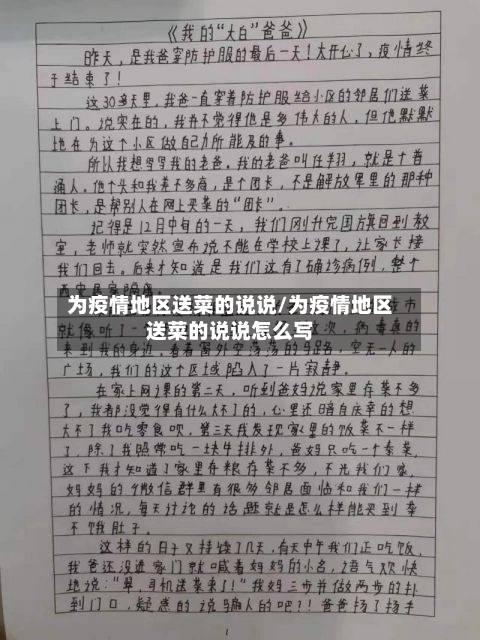 《我的“大白”爸爸》
昨天，是我爸穿防护服的最后一天！太开心了，疫情终
于结束了！
这30多天里，我爸一直穿着防护服给小区的邻居们送菜
上门。说实在的，我并不觉得他是多伟大的人，但他默默
地在为这个小区做自己力所能及的事。
所以我想写写我的老爸。我的老爸叫任翔，就是个普
通人。他个头和我差不多高，是个团长，不是解放军里的那种
团长，是帮别人在网上买菜的“团长”。
记得是12月中旬的一天，我们刚升完国旗回到教
室，老师就突然宣布说不能在学校上课了，让家长接
我们回去。后来才知道是我们这有了确诊病例，整个
西安居家隔离。
为疫情地区送菜的说说/为疫情地区
送菜的说说怎么写
城市
就像听了一 次，病毒真的
来到我的身边，看着窗外空荡荡的马路，空无一人的
广场，我们的这个区域陷入了一片寂静。
在家上网课的第二天，听到爸妈说家里存菜不多
了，我都没觉得有什么大不了的，心里还暗自庆幸的想
大不了我吃零食呗，第三天我发现家里的饭菜不一样
了，除了我照常吃一块牛排外，爸妈只吃一个素菜，
这下我才知道了家里存粮存菜不多，不光我们家，
妈妈的个微信群里有很多邻居面临和我们一样
的情况，每天讨论的话题就是怎么样能买到菜
不饿肚子。
这样的日子又持续了几天，有天中午我们正吃饭，
我爸还没进家门就喊着妈妈的小名，语气欢快
地说：“翠，司机送菜来了！”我妈三步并做两步的扑
到门口，疑惑的说骗人的吧？！爸爸扬了扬手
1